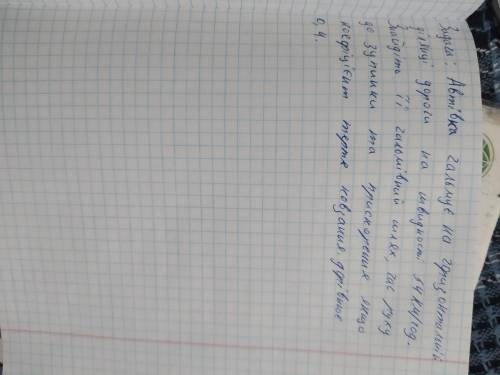 Задача: Автівка гальмує на гризонталній
ділянці дороги на швидності 54км/год.
Знайдіть її гальмівний шлях, час руху
до зупинки та прискорення якщо
коефіцієнт тертя ковзання дорівнює
0,4.